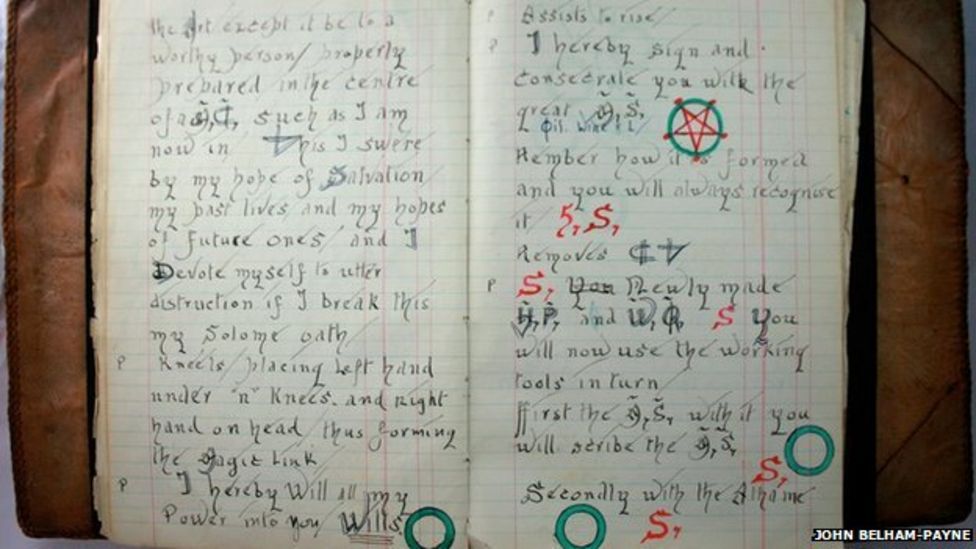 the Art except it be to a
worthy person/ properly
prepared in the centre
of a such as I am
now in This I swere
by my hope of Salvation
my past lives and my hopes
of future ones/ and I
Devote myself to utter
distruction if I break this
my Solome oath
P Kneels/ placing Left hand
under "n" Knees. and Right
hand on head thus forming
the Magic Link
P I hereby Will all my
Power into you Wills
P Assists to rise/
P I hereby sign and
consecrate you with the
great S,
Oil. Wine
Rember how it is formed
and you will always recognise
it S,
Removes
P S, You Newly made
H, P, and W, Q, S you
will now use the working
tools in turn
ffirst the S, with it you
will scribe the
S,
Secondly with the Athame
S,
JOHN BELHAM-PAYNE